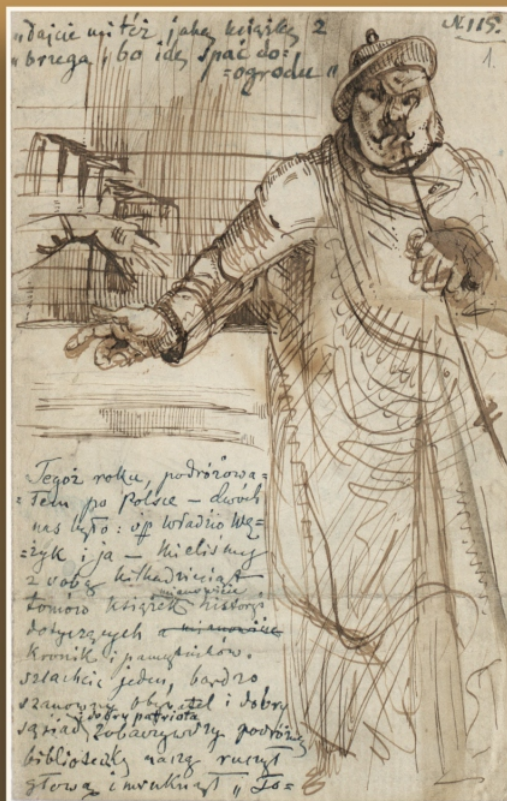 „Dajcie mi też jaką książkę z
brzega, bo idę spać do=
=ogrodu"
N. 115.
1.
Tegoż roku, podróżowa=
=łem po Polsce – dwóch
nas było: śp Władzio Wę=
=żyk i ja – Mieliśmy
z sobą kilkadziesiąt
tomów książek mianowicie historyi
dotyczących a mianowicie
kronik i pamiętników.
szlachcic jeden, bardzo
szanowny obywatel i dobry
sąsiad i dobry patriota zobaczywszy podróżną
biblioteczkę naszą ruszył
głową i mruknął „To=